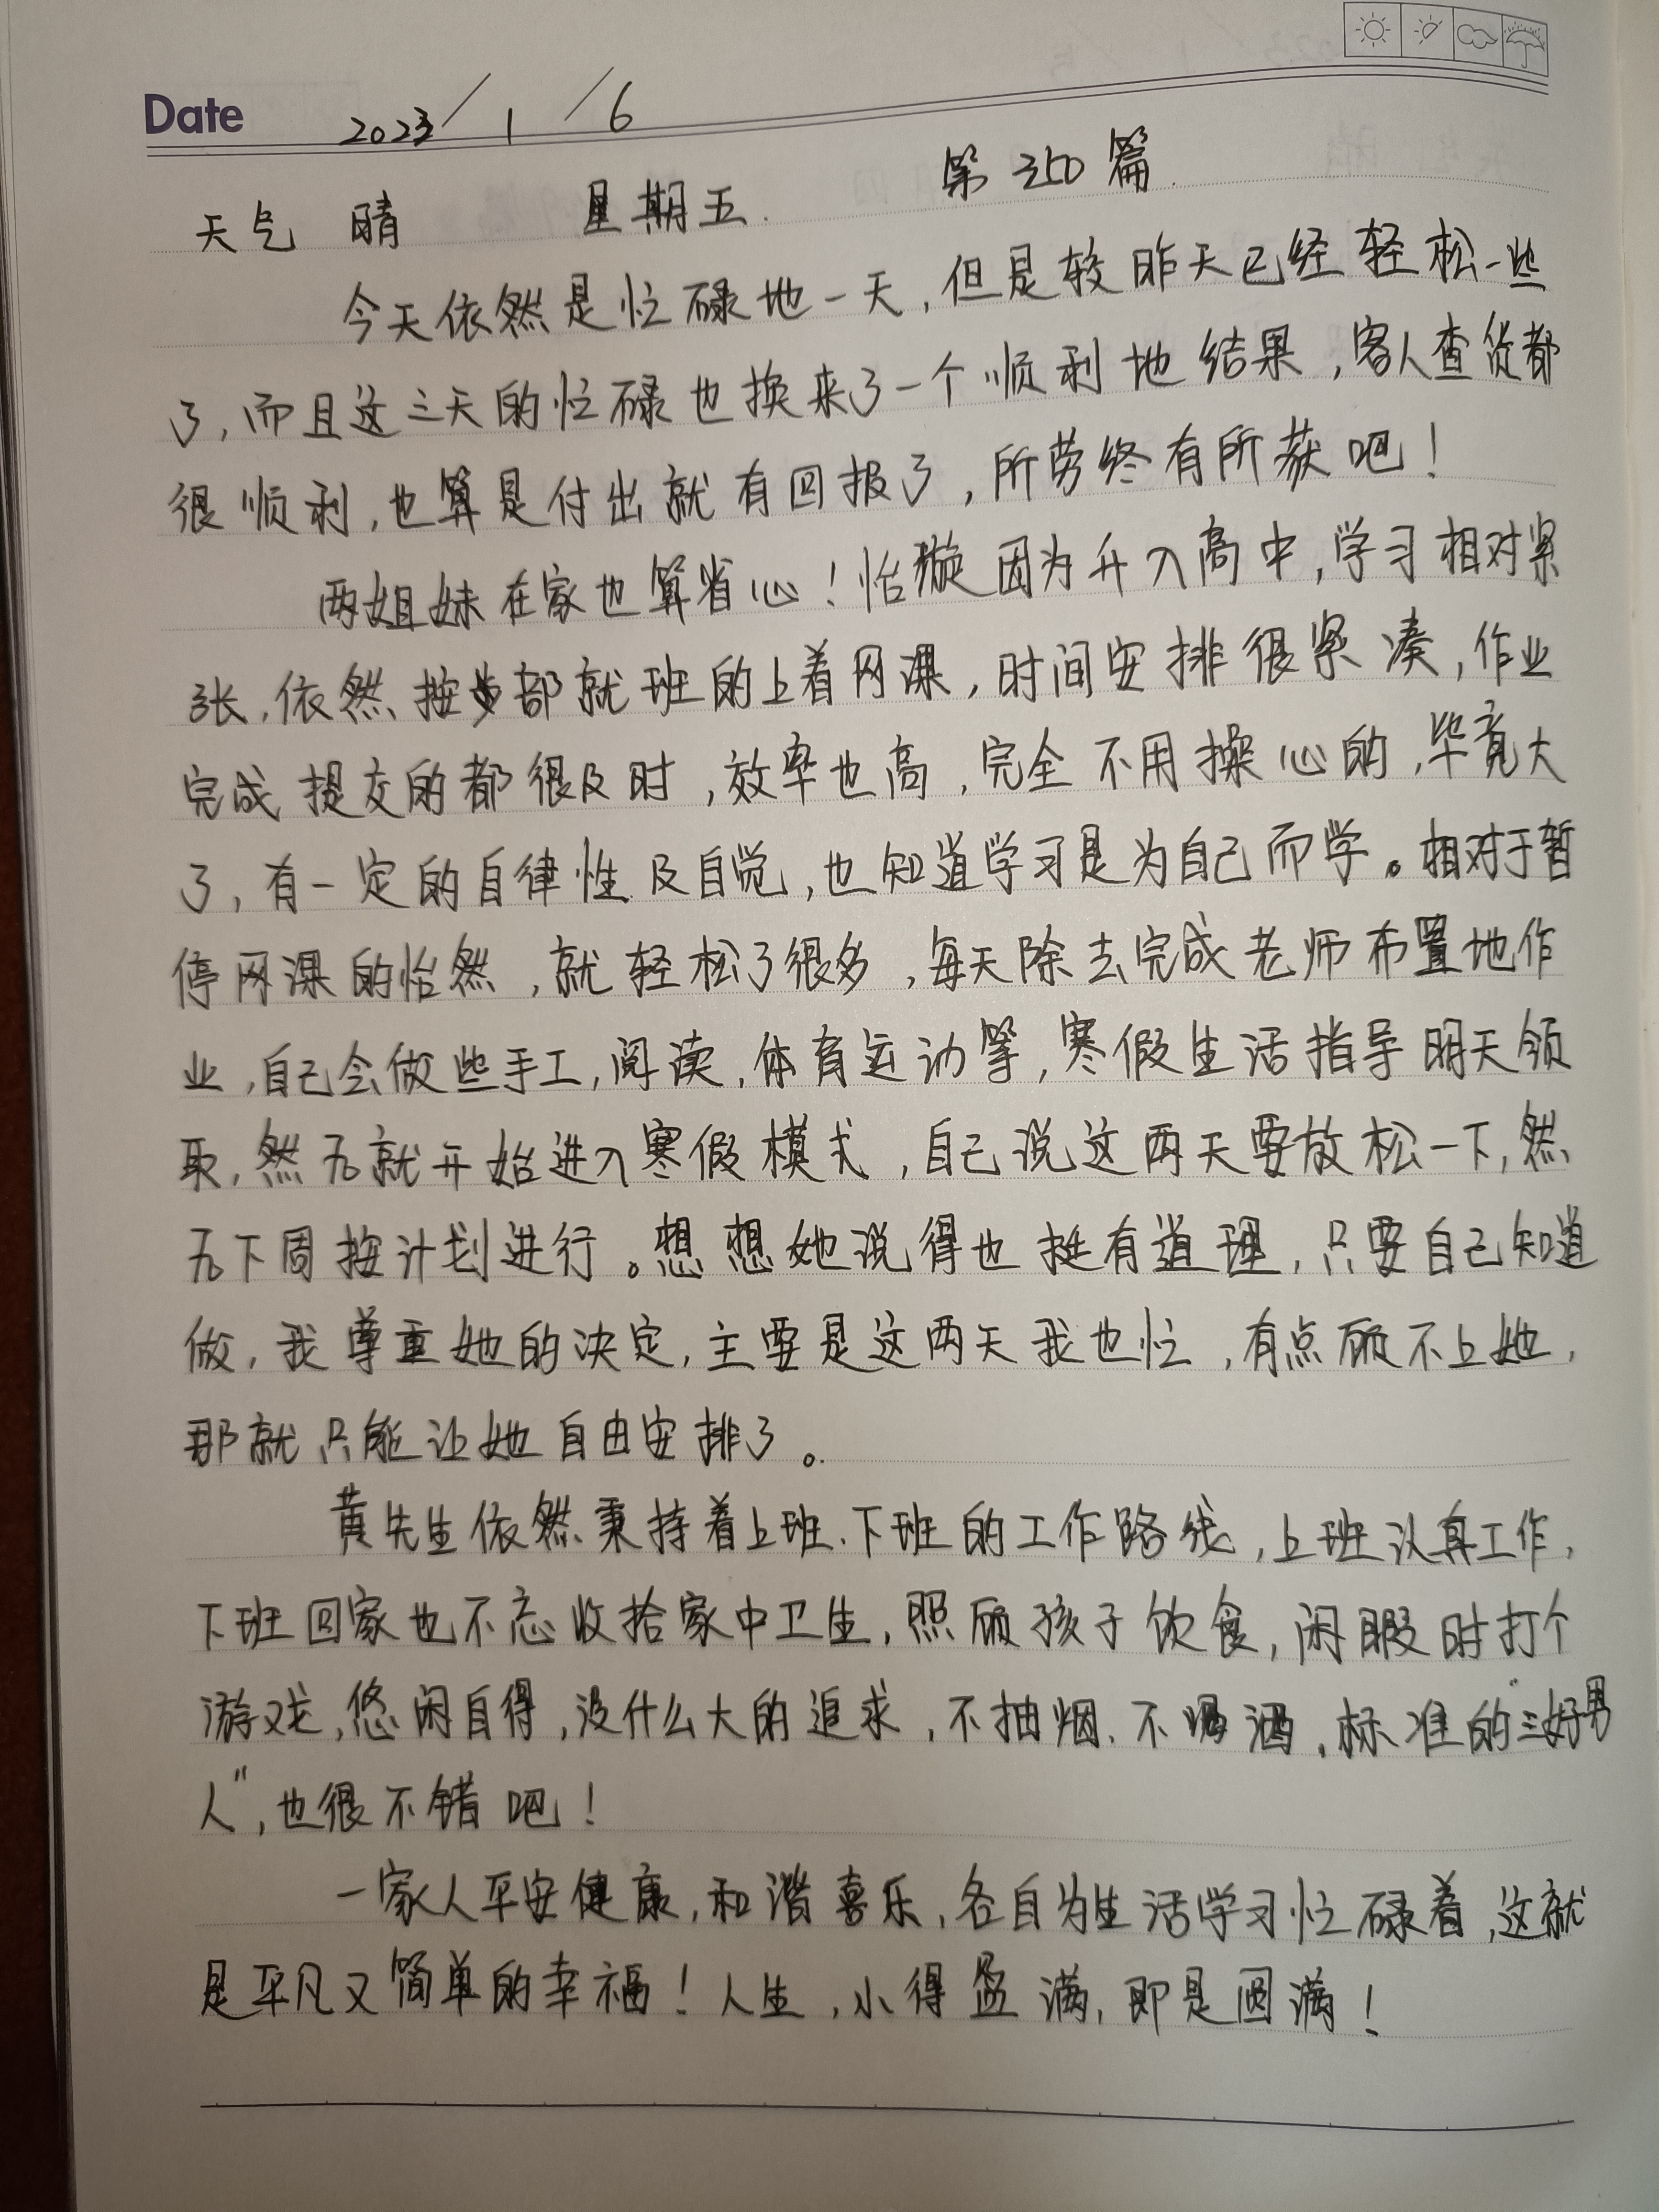 Date 2023/1/6
天气 晴 星期五. 第350篇.
今天依然是忙碌地一天,但是较昨天已经轻松一些
了,而且这三天的忙碌也换来了一个顺利地结果,客人查货都
很顺利,也算是付出就有回报了,所劳终有所获吧!
两姐妹在家也算省心!怡漩因为升入高中,学习相对紧
张,依然按步部就班的上着网课,时间安排很紧凑,作业
完成提交的都很及时,效率也高,完全不用操心的,毕竟大
了,有一定的自律性及自觉,也知道学习是为自己而学。相对于暂
停网课的怡然,就轻松了很多,每天除去完成老师布置地作
业,自己会做些手工,阅读,体育运动等,寒假生活指导明天领
取,然后就开始进入寒假模式,自己说这两天要放松一下,然
后下周按计划进行。想想她说得也挺有道理,只要自己知道
做,我尊重她的决定,主要是这两天我也忙,有点顾不上她,
那就只能让她自由安排了。
黄先生依然秉持着上班、下班的工作路线,上班认真工作,
下班回家也不忘收拾家中卫生,照顾孩子饮食,闲暇时打个
游戏,悠闲自得,没什么大的追求,不抽烟、不喝酒,标准的"三好男
人",也很不错吧!
一家人平安健康,和谐喜乐,各自为生活学习忙碌着,这就
是平凡又简单的幸福!人生,小得盈满,即是圆满!